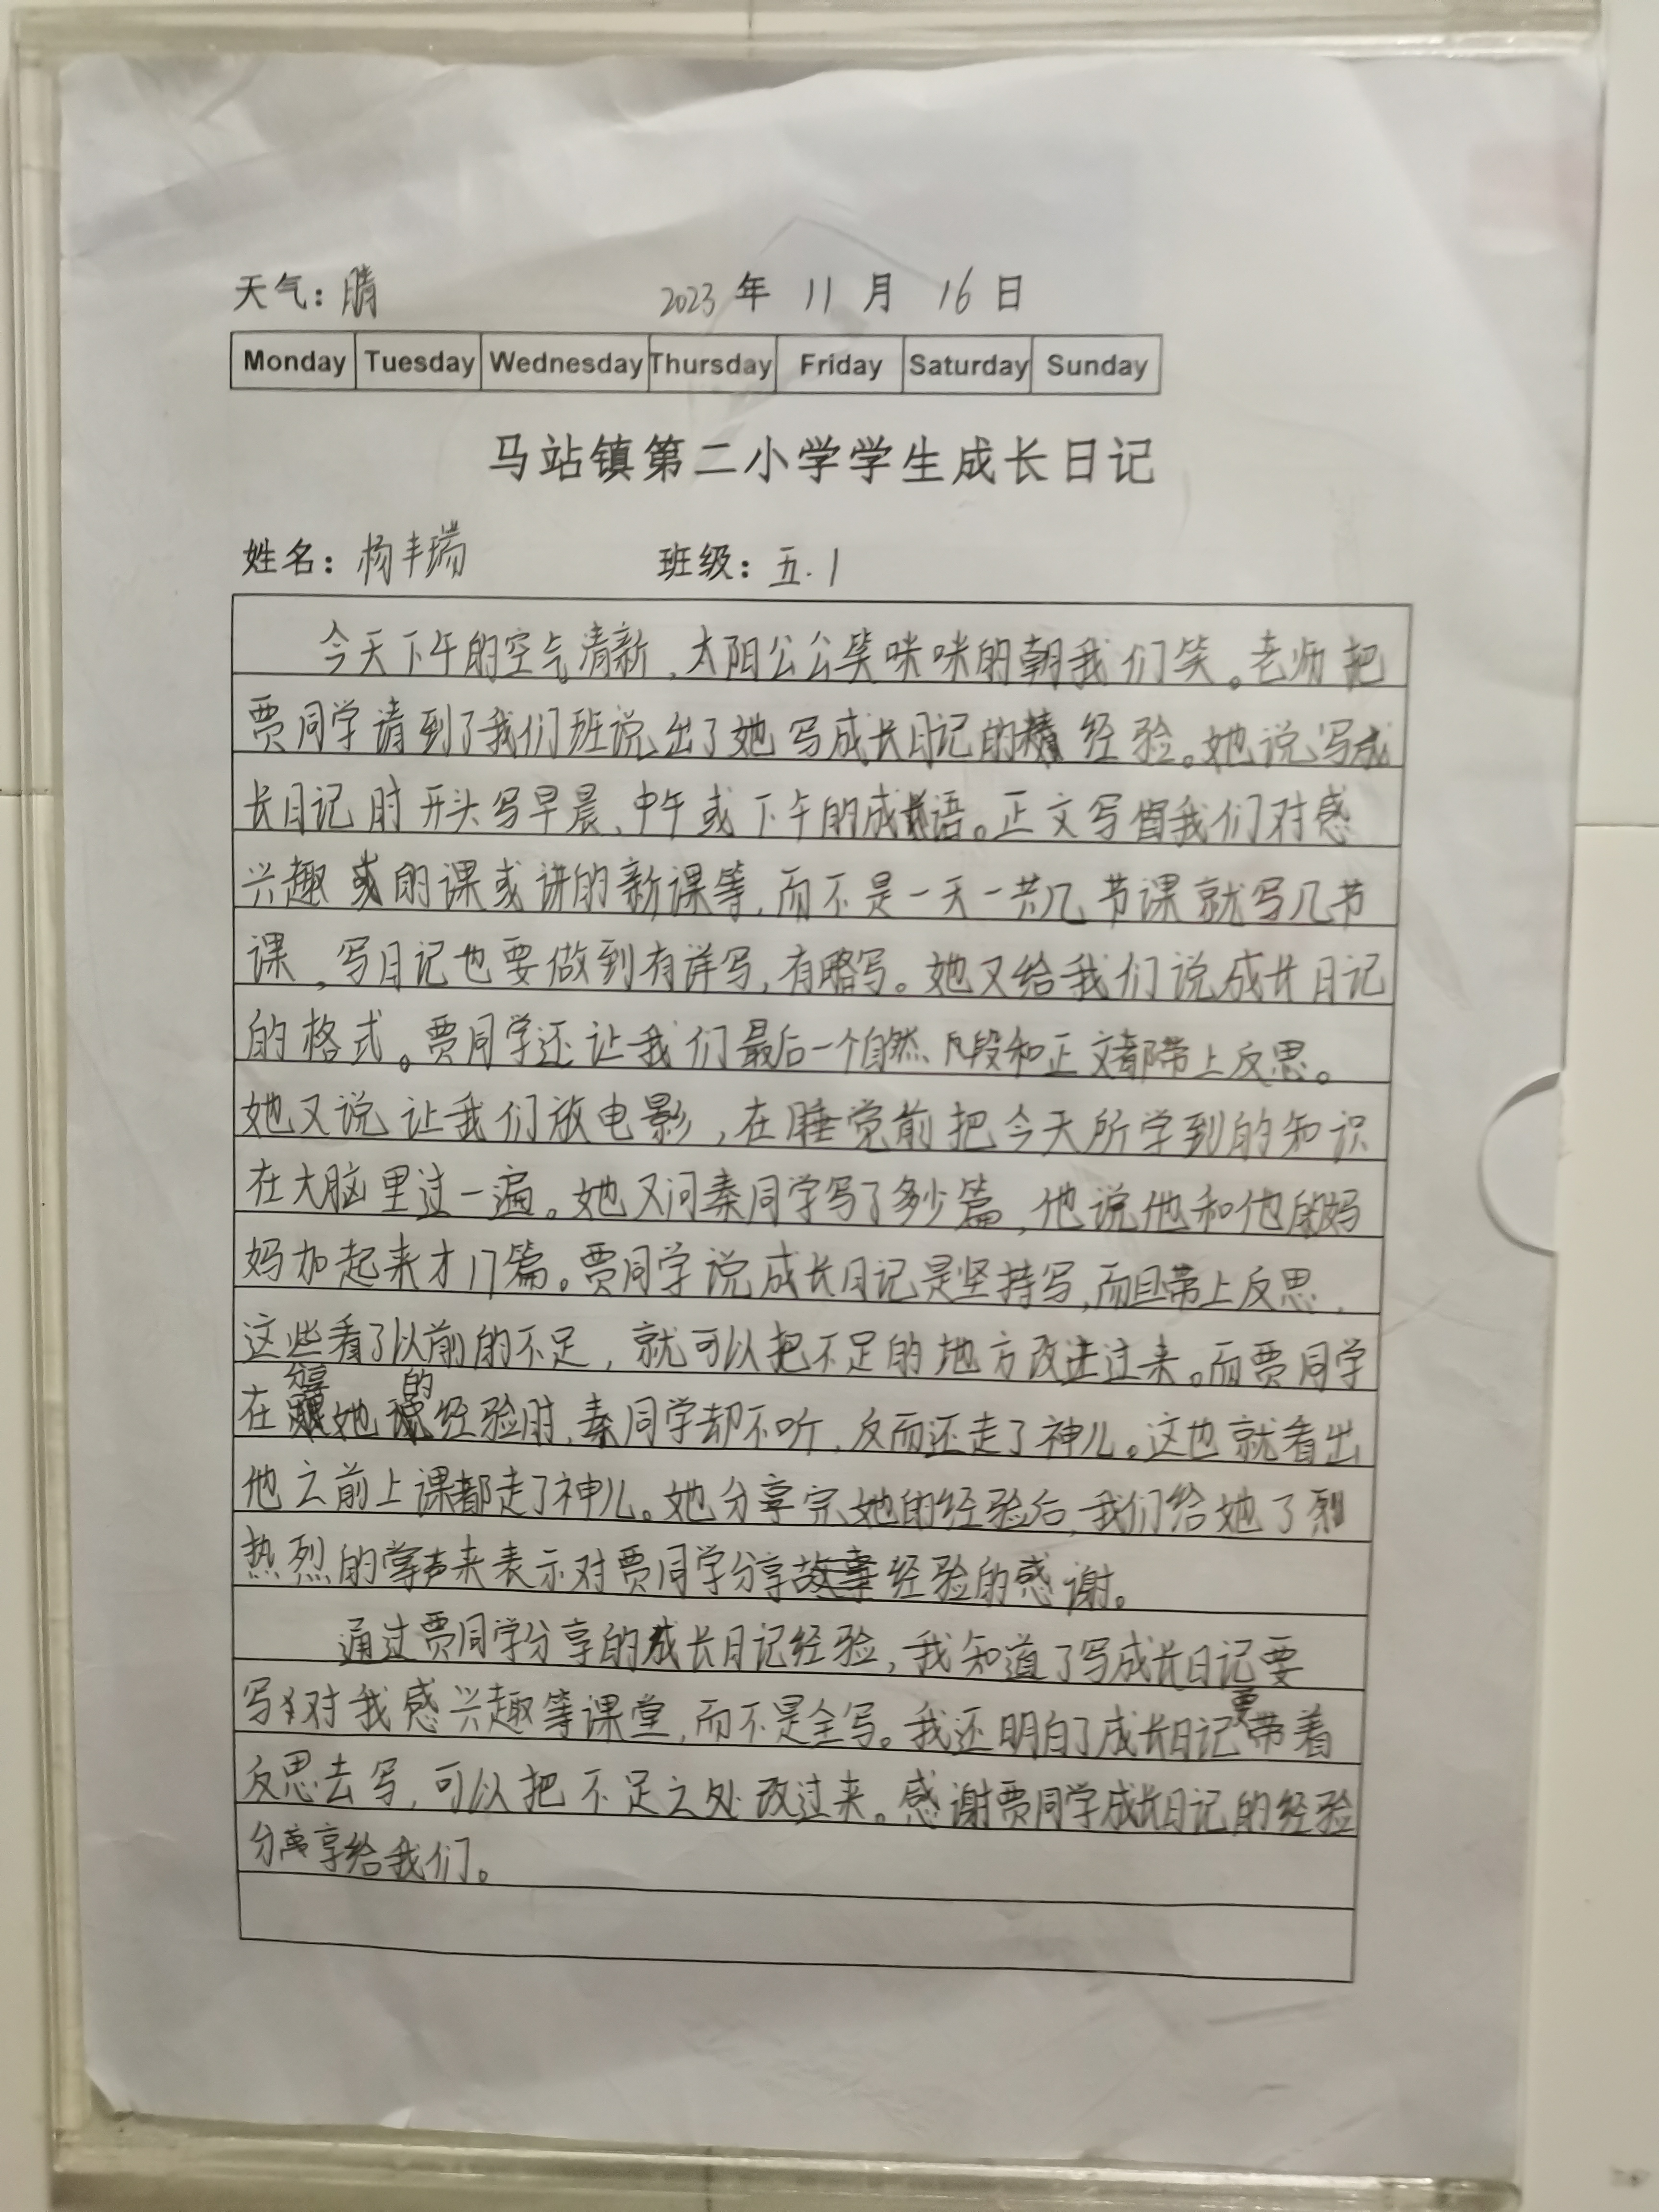 天气：晴 2023 年 11 月 16 日
Monday Tuesday Wednesday Thursday Friday Saturday Sunday
马站镇第二小学学生成长日记
姓名：杨丰瑞 班级：五.1
今天下午的空气清新，太阳公公笑咪咪的朝我们笑。老师把
贾同学请到了我们班说出了她写成长日记的经验。她说写成
长日记时开头写早晨、中午或下午的成语。正文写我们对感
兴趣的课或讲的新课等，而不是一天一共几节课就写几节
课，写日记也要做到有详写，有略写。她又给我们说成长日记
的格式。贾同学还让我们最后一个自然段和正文都带上反思。
她又说让我们放电影，在睡觉前把今天所学到的知识
在大脑里过一遍。她又问秦同学写了多少篇，他说他和他的妈
妈加起来才17篇。贾同学说成长日记是坚持写，而且带上反思，
这些看了以前的不足，就可以把不足的地方改进过来。而贾同学
在分享她的经验时，秦同学却不听，反而还走了神儿。这也就看出
他之前上课都走了神儿。她分享完她的经验后，我们给她了
热烈的掌声来表示对贾同学分享经验的感谢。
通过贾同学分享的成长日记经验，我知道了写成长日记要
写对我感兴趣等课堂，而不是全写。我还明白了成长日记要带着
反思去写，可以把不足之处改过来。感谢贾同学成长日记的经验
分享给我们。